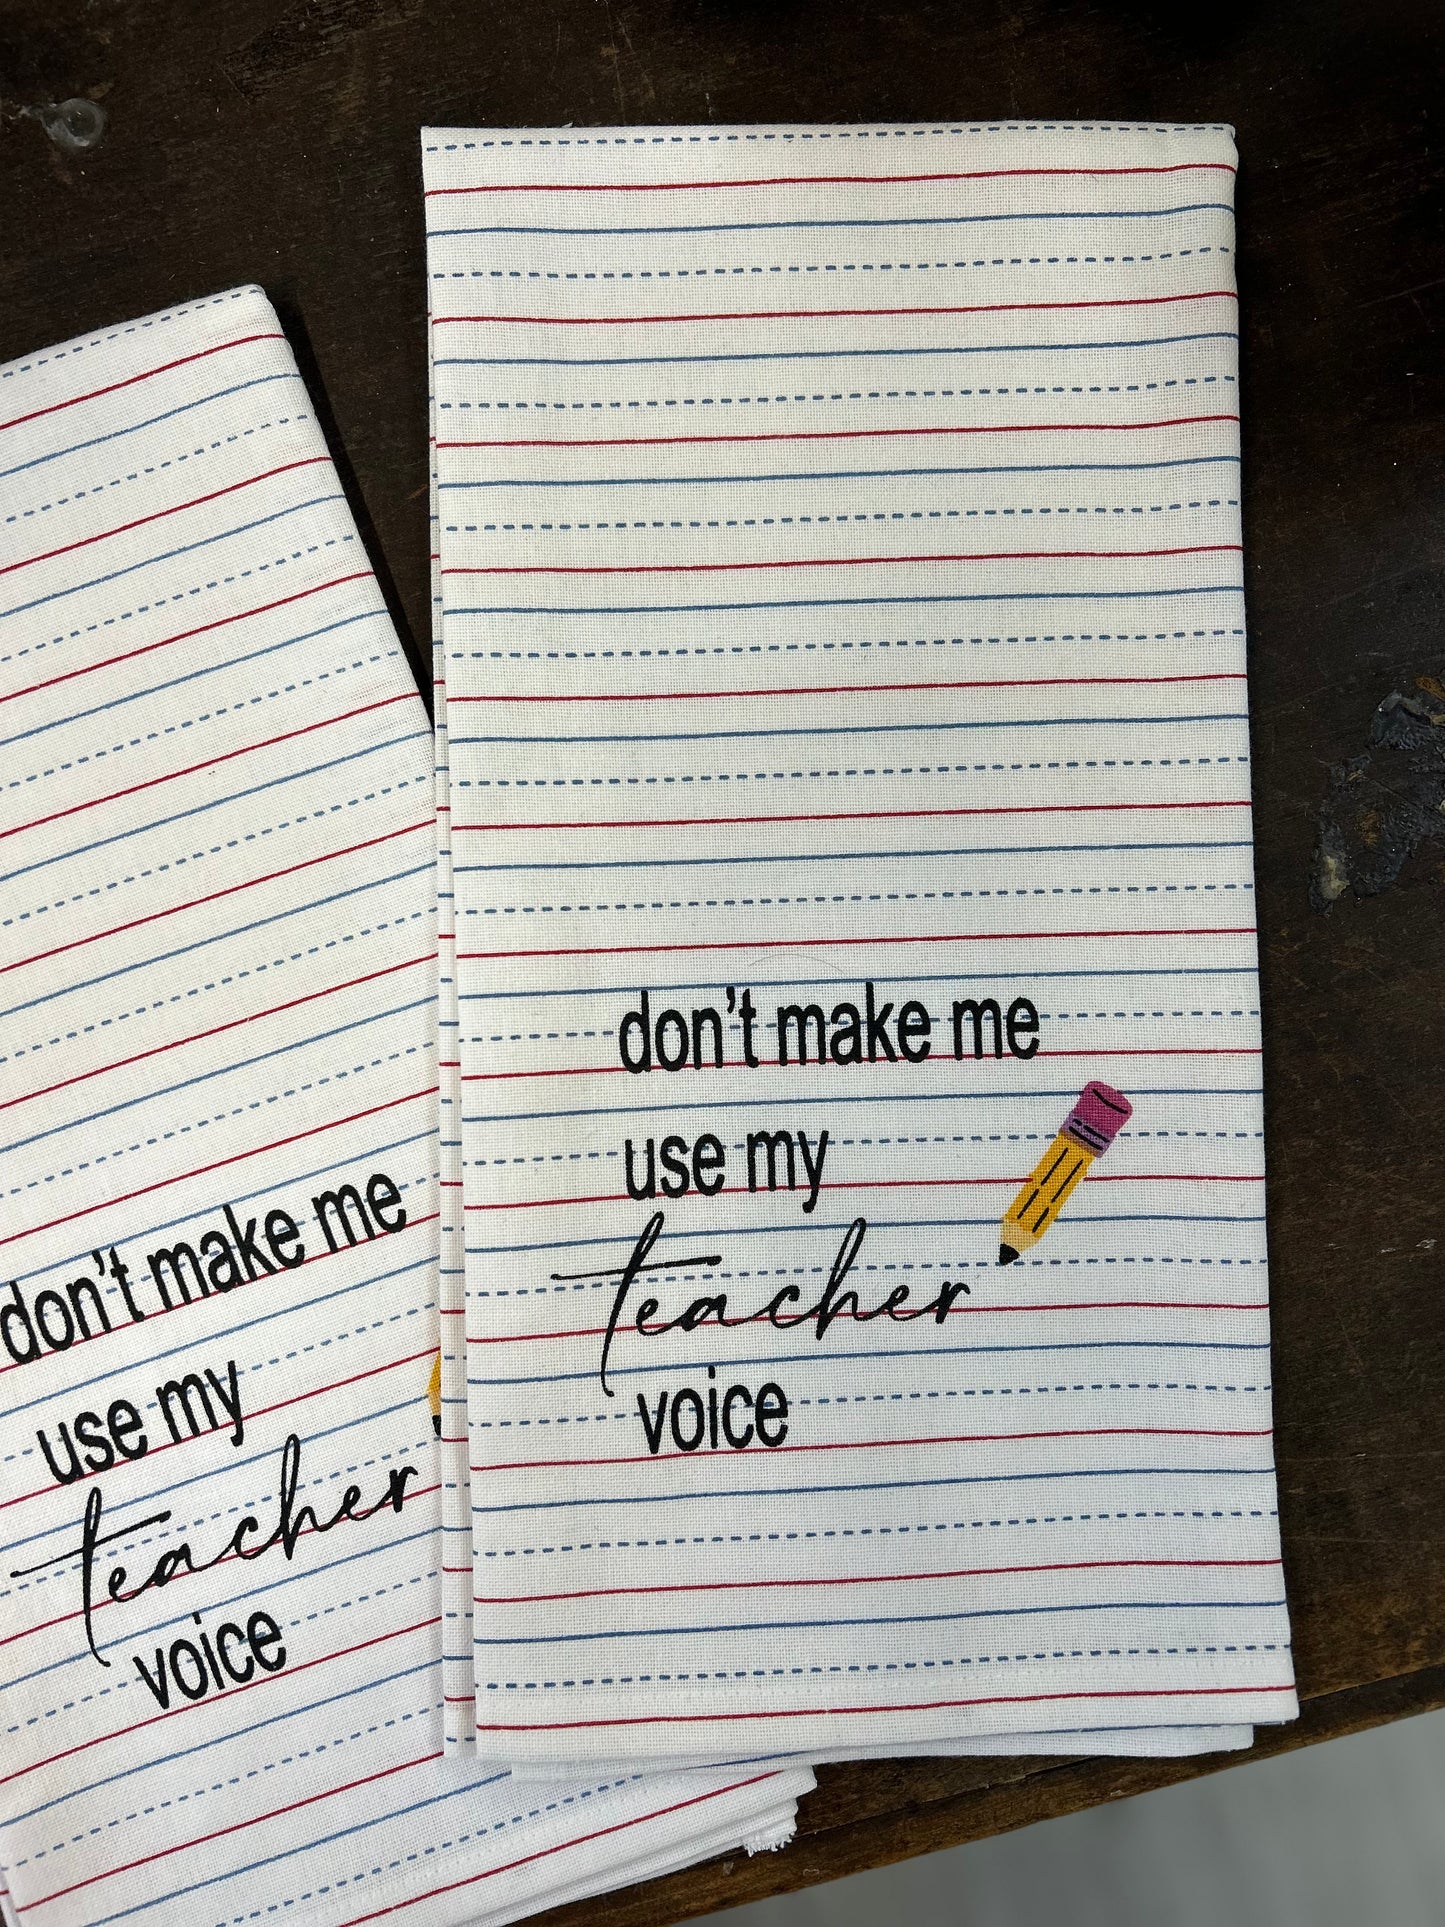 don't make me
use my
teacher
voice
don't make me
use my
teacher
voice